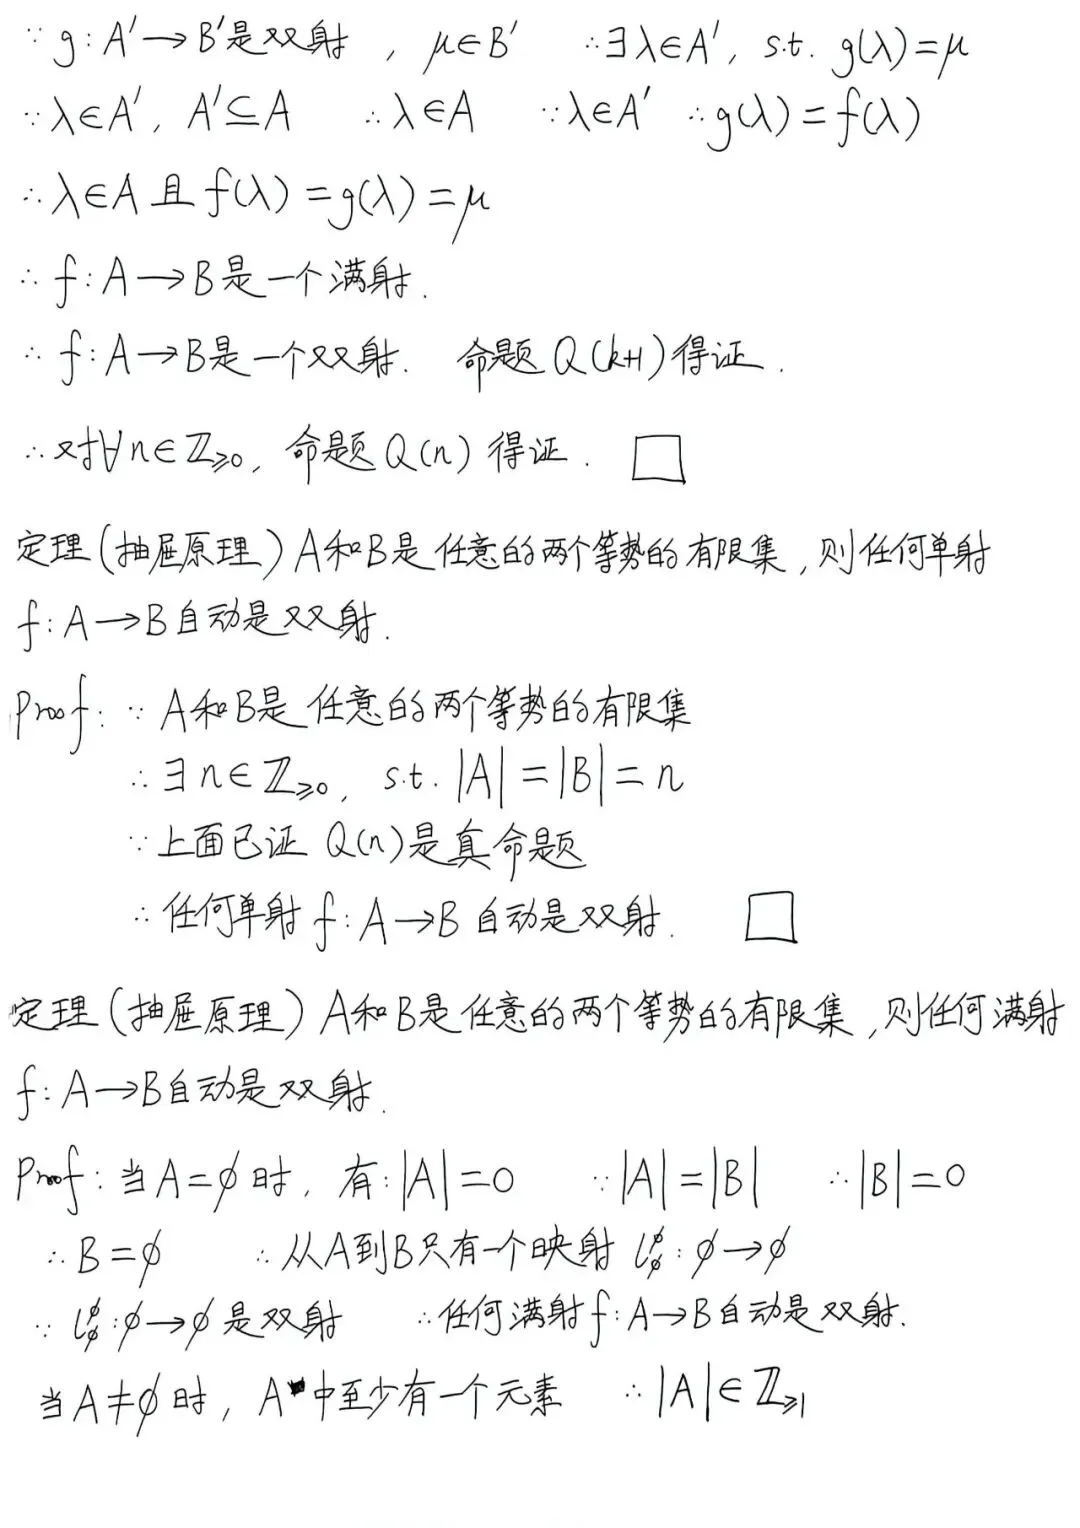 ∵ g: A′→B′是双射 , μ∈B′ ∴∃λ∈A′, s.t. g(λ)=μ
∵λ∈A′, A′⊆A ∴λ∈A ∵λ∈A′ ∴g(λ)=f(λ)
∴λ∈A 且 f(λ)=g(λ)=μ
∴ f: A→B是一个满射.
∴ f: A→B是一个双射. 命题 Q(k+1)得证.
∴对∀n∈ℤ≥0, 命题 Q(n) 得证. □
定理(抽屉原理) A和B是任意的两个等势的有限集,则任何单射
f: A→B自动是双射.
Proof: ∵ A和B是任意的两个等势的有限集
∴∃n∈ℤ≥0, s.t. |A|=|B|=n
∵上面已证 Q(n)是真命题
∴任何单射 f: A→B 自动是双射. □
定理(抽屉原理) A和B是任意的两个等势的有限集,则任何满射
f: A→B自动是双射.
Proof: 当A=∅时, 有:|A|=0 ∵|A|=|B| ∴|B|=0
∴B=∅ ∴从A到B只有一个映射 l^∅_∅: ∅→∅
∵ l^∅_∅: ∅→∅是双射 ∴任何满射f: A→B自动是双射.
当A≠∅时, A中至少有一个元素 ∴|A|∈ℤ≥1